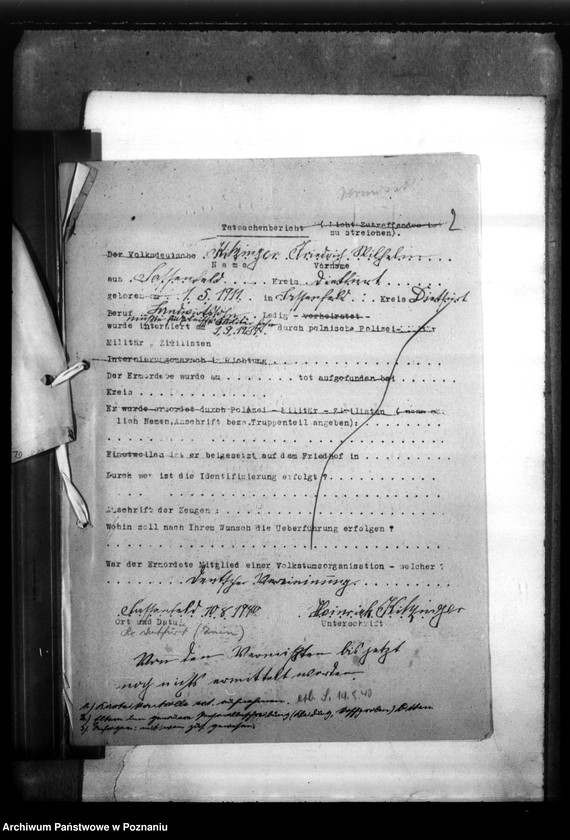 vermisst
2
Tatsachenbericht (Nicht Zutreffendes ist
zu streichen).
Der Volksdeutsche Kitzinger Friedrich Wilhelm
Name Vorname
aus Sassenfeld Kreis Dietfurt
geboren am 1.5.1914 in Sassenfeld Kreis Dietfurt
Beruf Landwirtssohn ledig - verheiratet -
wurde interniert am 1.9.1939 durch polnische Polizei-
Militär, Zivilisten
Internierungsmarsch in Richtung
Der Ermordete wurde am tot aufgefunden bei
Kreis
Er wurde ermordet durch Polizei - Militär - Zivilisten
lich Namen, Anschrift bezw. Truppenteil angeben):
Einstweilen ist er beigesetzt auf dem Friedhof in
Durch wen ist die Identifizierung erfolgt ?
Anschrift der Zeugen :
Wohin soll nach Ihrem Wunsch die Ueberführung erfolgen ?
War der Ermordete Mitglied einer Volkstumsorganisation - welcher ?
Deutsche Vereinigung
Sassenfeld 10.8.1940 Heinrich Kitzinger
Ort und Datum Unterschrift
Kr. Dietfurt (Znin)
Von dem Vermißten bis jetzt
noch nichts ermittelt worden
1.) Karteikontrolle
2.) Eltern um genaue (Kleidung,
3.)
Archiwum Państwowe w Poznaniu